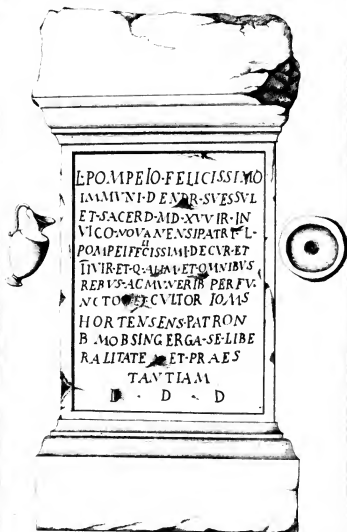 L·POMPEIO·FELICISSIMO
IMMVNI·DENDR·SVESSVL
ET·SACERD·MD·XVVIR·IN
VICO·NOVANENSI·PATRI·L·
POMPEI·FELICISSIMI·DECVR·ET
IIVIR·ET·Q·ALIM·ET·OMNIBVS
REBVS·AC·MVNERIB PERFV
NCTO CVLTOR IOMS
HORTENSENS·PATRON
B MOB SING ERGA·SE·LIBE
RALITATE ET·PRAES
TANTIAM
D · D · D